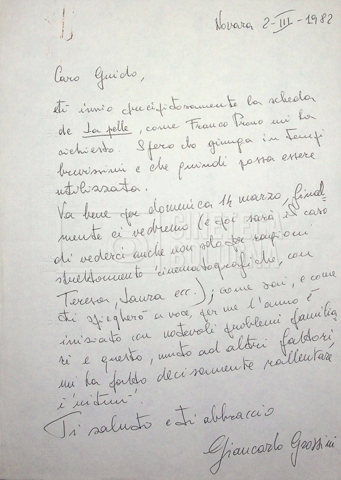 Novara 2-III-1982
Caro Guido,
ti invio precipitosamente la scheda
de La pelle, come Franco Prono mi ha
richiesto. Spero che giunga in tempi
brevissimi e che quindi possa essere
utilizzata.
Va bene per domenica 14 marzo, final-
mente ci vedremo (e poi sarà il caso
di vederci anche non solo per ragioni
strettamente cinematografiche, con
Teresa, Laura ecc.); come sai, e come
ti spiegherò a voce, per me l'anno è
iniziato con notevoli problemi familia-
ri e questo, unito ad altri fattori,
mi ha fatto decisamente rallentare
i "ritmi".
Ti saluto e ti abbraccio
Giancarlo Grossini